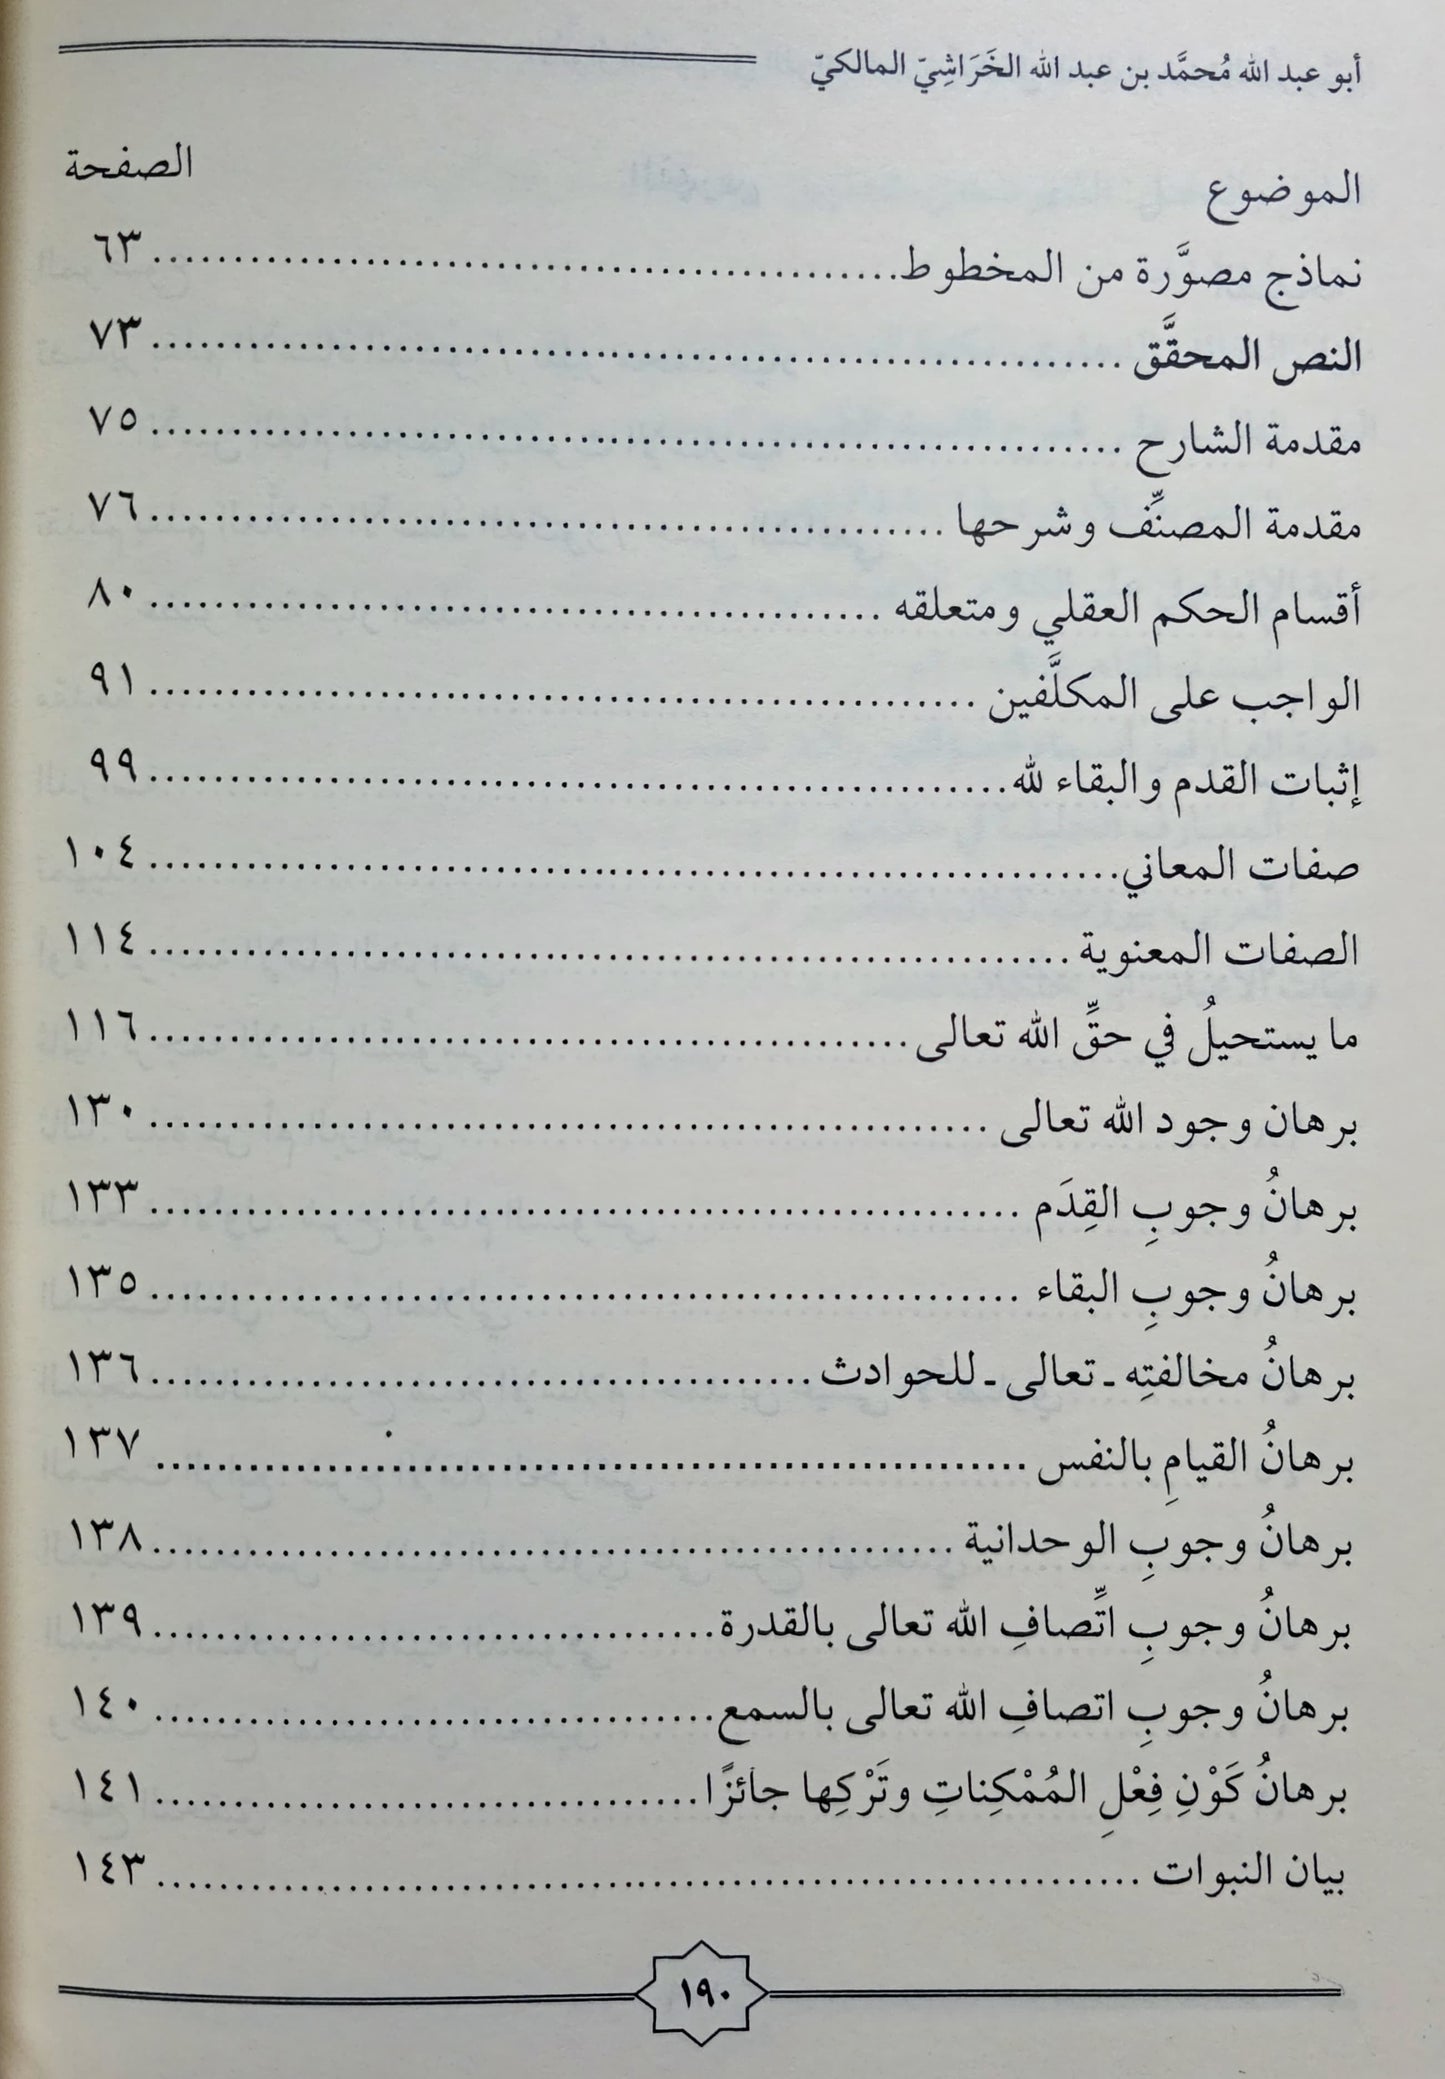 أبو عبد الله مُحمَّد بن عبد الله الخَرَاشِيّ المالكيّ
الموضوع الصفحة
نماذج مصوَّرة من المخطوط ٦٣
النص المحقَّق ٧٣
مقدمة الشارح ٧٥
مقدمة المصنِّف وشرحها ٧٦
أقسام الحكم العقلي ومتعلقه ٨٠
الواجب على المكلَّفين ٩١
إثبات القدم والبقاء لله ٩٩
صفات المعاني ١٠٤
الصفات المعنوية ١١٤
ما يستحيلُ في حقِّ الله تعالى ١١٦
برهان وجود الله تعالى ١٣٠
برهانُ وجوبِ القِدَم ١٣٣
برهانُ وجوبِ البقاء ١٣٥
برهانُ مخالفتِه ـ تعالى ـ للحوادث ١٣٦
برهانُ القيامِ بالنفس ١٣٧
برهانُ وجوبِ الوحدانية ١٣٨
برهانُ وجوبِ اتِّصافِ الله تعالى بالقدرة ١٣٩
برهانُ وجوبِ اتصافِ الله تعالى بالسمع ١٤٠
برهانُ كَوْنِ فِعْلِ المُمْكِناتِ وتَرْكِها جائزًا ١٤١
بيان النبوات ١٤٣
١٩٠